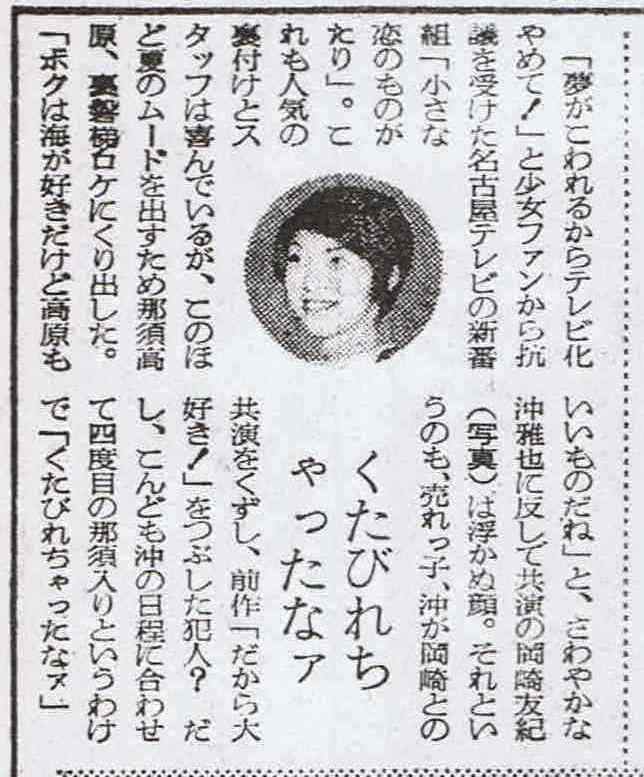 くたびれち
やったなァ
「夢がこわれるからテレビ化
やめて!」と少女ファンから抗
議を受けた名古屋テレビの新番
組「小さな
恋のものが
たり」。こ
れも人気の
裏付けとス
タッフは喜んでいるが、このほ
ど夏のムードを出すため那須高
原、裏磐梯ロケにくり出した。
「ボクは海が好きだけど高原も
いいものだね」と、さわやかな
沖雅也に反して共演の岡崎友紀
(写真)は浮かぬ顔。それとい
うのも、売れっ子、沖が岡崎との
共演をくずし、前作「だから大
好き!」をつぶした犯人? だ
し、こんども沖の日程に合わせ
て四度目の那須入りというわけ
で「くたびれちゃったなァ」